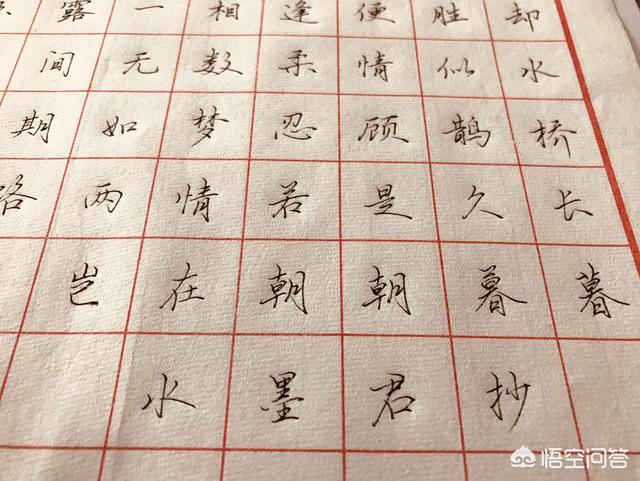 露一相逢便胜却
间无数柔情似水
期如梦忍顾鹊桥
路两情若是久长
岂在朝朝暮暮
水墨君抄
悟空问答